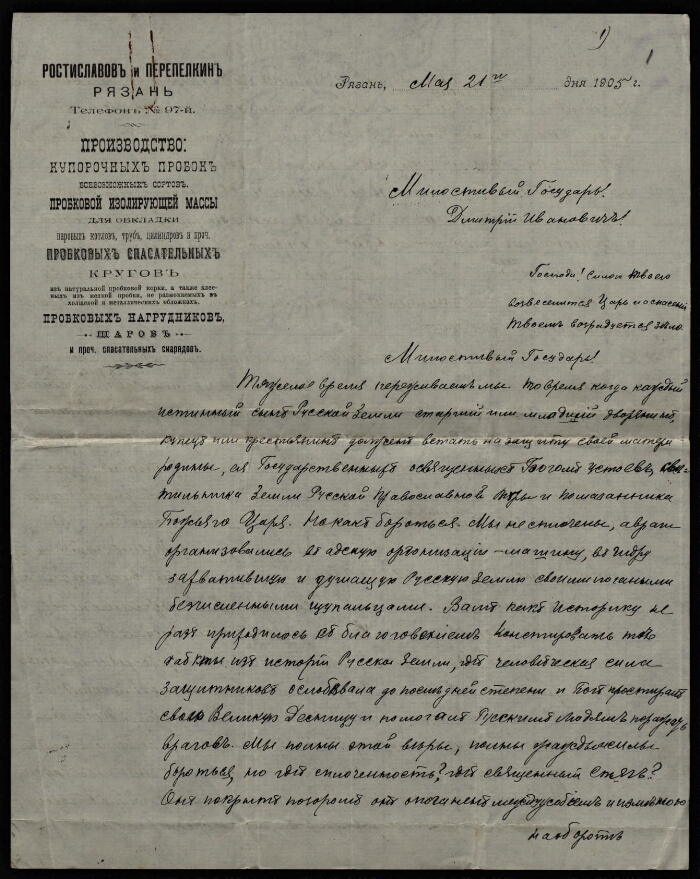 1) 1
РОСТИСЛАВОВЪ и ПЕРЕПЕЛКИНЪ
РЯЗАНЬ
Телефонъ № 97-й.
ПРОИЗВОДСТВО:
КУПОРОЧНЫХЪ ПРОБОКЪ
ВСЕВОЗМОЖНЫХЪ СОРТОВЪ.
ПРОБКОВОЙ ИЗОЛИРУЮЩЕЙ МАССЫ
ДЛЯ ОБКЛАДКИ
паровыхъ котловъ, трубъ, цилиндровъ и проч.
ПРОБКОВЫХЪ СПАСАТЕЛЬНЫХЪ
КРУГОВЪ
изъ натуральной пробковой корки, а также клее-
ныхъ изъ мелкой пробки, не размокаемыхъ въ
холщевой и металлическихъ обложкахъ.
ПРОБКОВЫХЪ НАГРУДНИКОВЪ,
ШАРОВЪ
и проч. спасательныхъ снарядовъ.
Рязань, Мая 21го дня 1905 г.
Милостивый Государь!
Дмитрій Ивановичъ!
Господи! силою твоею
возвеселится Царь и о спасеніи
твоемъ возрадуется зело
Милостивый Государь!
Тяжелое время переживаемъ мы то время когда каждый
истинный сынъ Русской Земли старшій или младшій дворянинъ,
купецъ или крестьянинъ долженъ встать на защиту своей матери
родины, ея Государственныхъ освященныхъ Богомъ устоевъ, свѣ-
тильника Земли Русской Православной и помазанника
Божьяго Царя. Но какъ бороться. Мы не сплочены, а враги
организовались въ адскую организацію – машину, въ гидру
захватившую и душащую Русскую Землю своими погаными
безчисленными щупальцами. Вамъ какъ историку не
разъ приходилось съ благоговеніемъ констатировать
факты изъ исторіи Русской Земли, гдѣ человѣческая сила
защитниковъ ослабѣвала до послѣдней степени и Богъ простиралъ
свою Великую Десницу и помогалъ Русскимъ людямъ
враговъ. Мы полны этой вѣры, полны
бороться, но гдѣ сплоченность? гдѣ священный Стягъ?
Онъ покрытъ позоромъ онъ опоганенъ междуусобіемъ и измѣною
наоборотъ